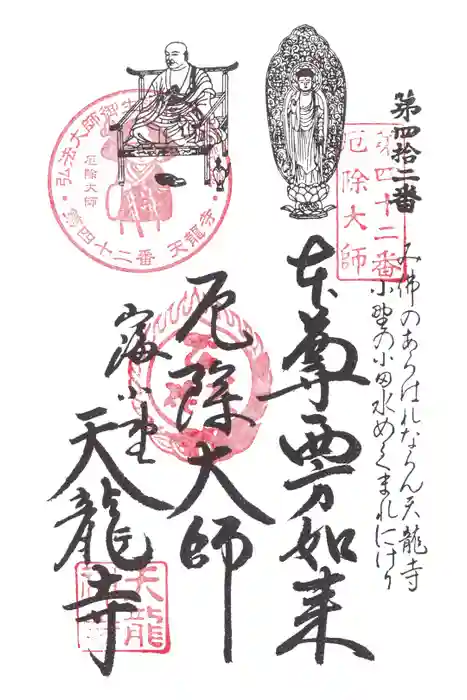 第四拾二番
第四十二番
厄除大師
み佛のあらはれならん天龍寺
小埜の小田水めくまれにけり
本尊西方如来
厄除大師
小埜
天龍寺
弘法大師御
厄除大師
第四十二番 天龍寺
天龍